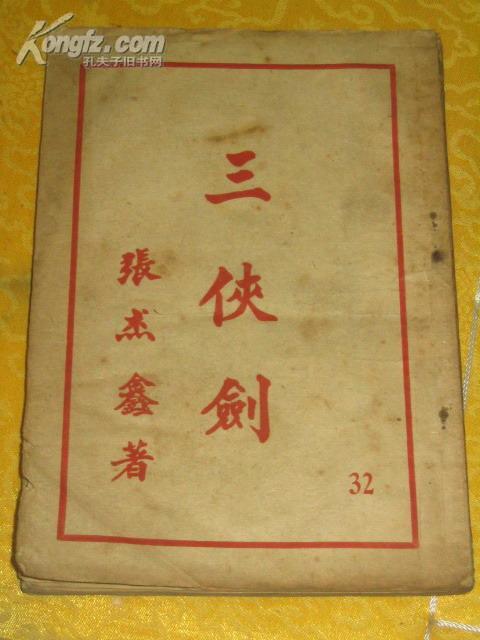 Kongfz.com
孔夫子旧书网
三俠劍
張杰鑫著
32